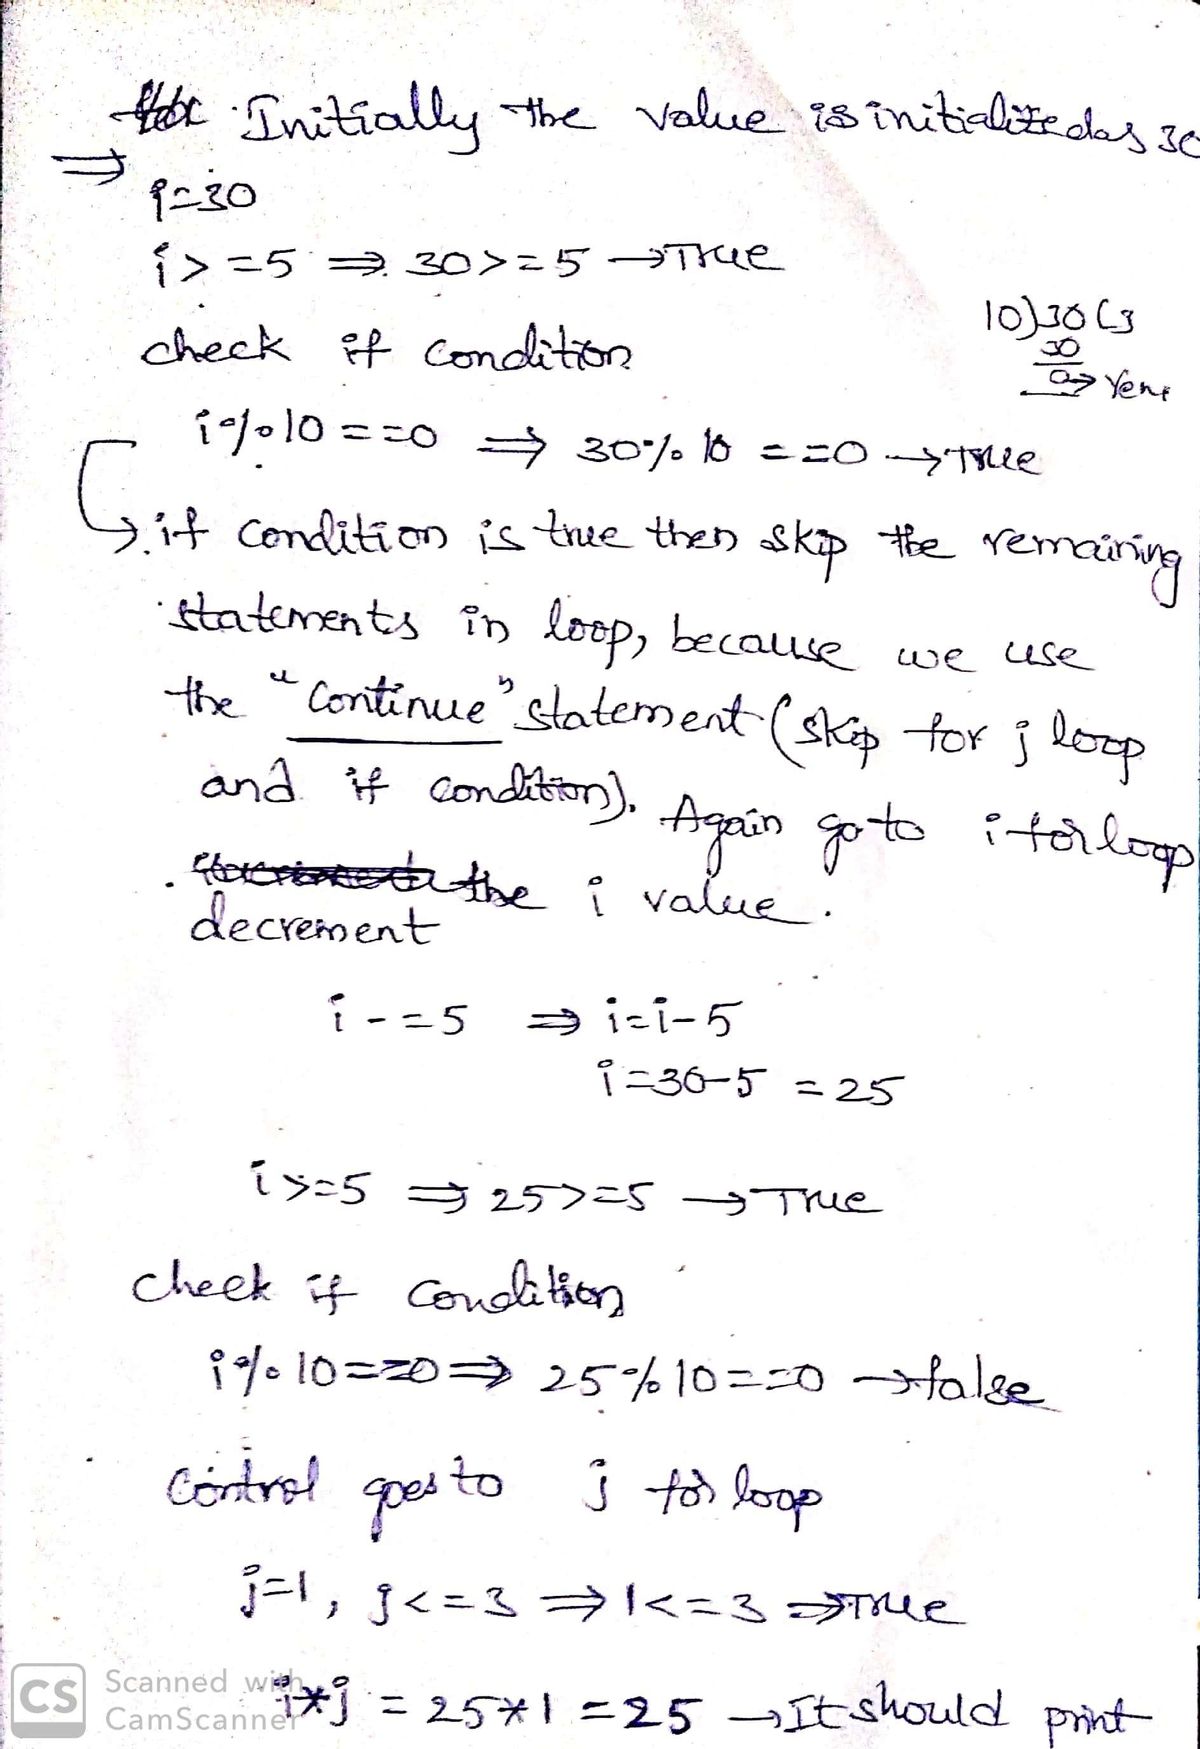 Initially the value is initialized as 30
⇒
i=30
i>=5 ⇒ 30>=5 → True
check if condition
10)30(3
30
0→ Rem
i%10==0 ⇒ 30%10 ==0 → True
↳ if condition is true then skip the remaining
statements in loop, because we use
the "continue" statement (skip for j loop
and if condition). Again go to i for loop
the i value.
decrement
i-=5 ⇒ i=i-5
i=30-5 =25
i>=5 ⇒ 25>=5 → True
check if condition
i%10==0 ⇒ 25%10==0 → false
control goes to j for loop
j=1, j<=3 ⇒ 1<=3 ⇒ True
i*j = 25*1 =25 → It should print
CS Scanned with
CamScanner